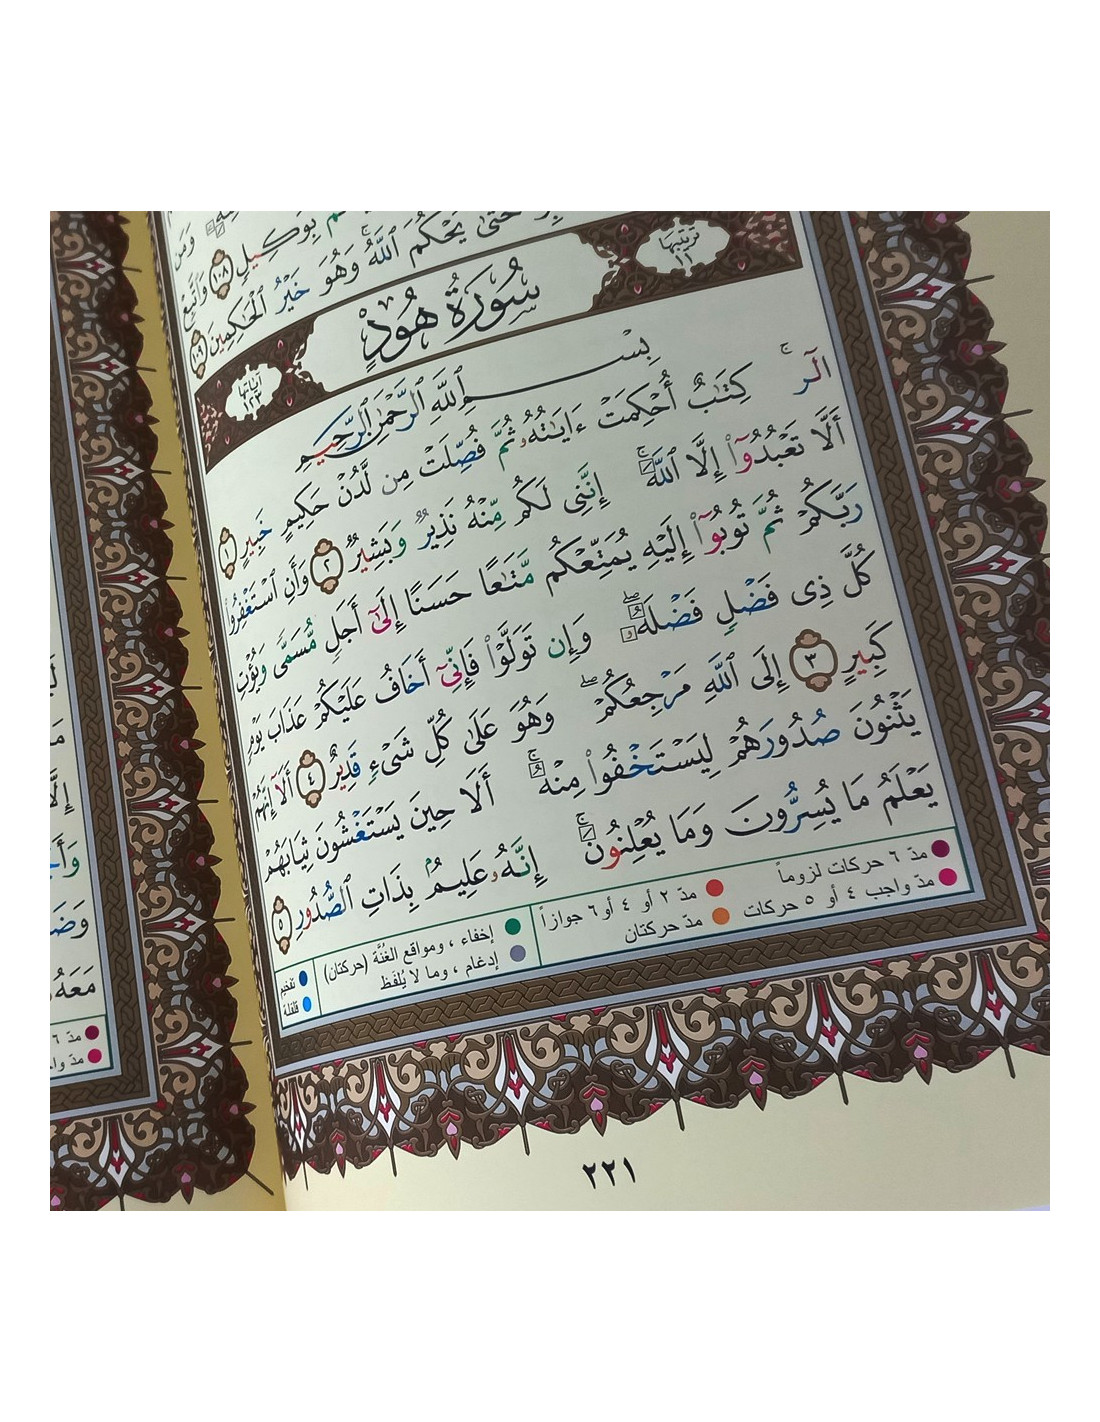 وَمَن
بِوَكِيلٍ ١٠٨ وَاتَّبِعْ
حَتَّىٰ يَحْكُمَ ٱللَّهُ ۚ وَهُوَ خَيْرُ ٱلْحَٰكِمِينَ ١٠٩
ترتيبها ١١
سُورَةُ هُودٍ
آياتها ١٢٣
بِسْمِ ٱللَّهِ ٱلرَّحْمَٰنِ ٱلرَّحِيمِ
الٓر ۚ كِتَٰبٌ أُحْكِمَتْ ءَايَٰتُهُۥ ثُمَّ فُصِّلَتْ مِن لَّدُنْ حَكِيمٍ خَبِيرٍ ١
أَلَّا تَعْبُدُوٓا۟ إِلَّا ٱللَّهَ ۚ إِنَّنِى لَكُم مِّنْهُ نَذِيرٌ وَبَشِيرٌ ٢ وَأَنِ ٱسْتَغْفِرُوا۟
رَبَّكُمْ ثُمَّ تُوبُوٓا۟ إِلَيْهِ يُمَتِّعْكُم مَّتَٰعًا حَسَنًا إِلَىٰٓ أَجَلٍ مُّسَمًّى وَيُؤْتِ
كُلَّ ذِى فَضْلٍ فَضْلَهُۥ ۖ وَإِن تَوَلَّوْا۟ فَإِنِّىٓ أَخَافُ عَلَيْكُمْ عَذَابَ يَوْمٍ
كَبِيرٍ ٣ إِلَى ٱللَّهِ مَرْجِعُكُمْ ۖ وَهُوَ عَلَىٰ كُلِّ شَىْءٍ قَدِيرٌ ٤ أَلَآ إِنَّهُمْ
يَثْنُونَ صُدُورَهُمْ لِيَسْتَخْفُوا۟ مِنْهُ ۚ أَلَا حِينَ يَسْتَغْشُونَ ثِيَابَهُمْ
يَعْلَمُ مَا يُسِرُّونَ وَمَا يُعْلِنُونَ ۚ إِنَّهُۥ عَلِيمٌۢ بِذَاتِ ٱلصُّدُورِ ٥
مدّ ٦ حركات لزوماً
مدّ ٢ أو ٤ أو ٦ جوازاً
إخفاء ، ومواقع الغُنَّة (حركتان)
تفخيم
مدّ واجب ٤ أو ٥ حركات
مدّ حركتان
إدغام ، وما لا يُلفَظ
قلقلة
٢٢١
مَعَهُ
مدّ ٦
مدّ واج